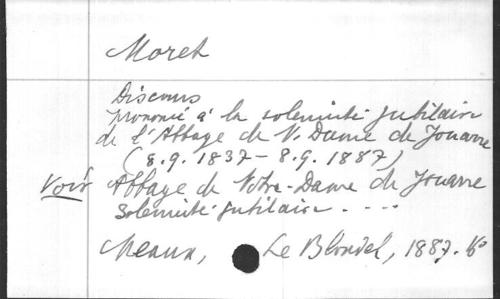 Moret
Discours
prononcé à la solennité jubilaire
de l'Abbaye de N. Dame de Jouarre
(8.9. 1837 - 8.9. 1887)
Voir Abbaye de Notre-Dame de Jouarre
Solennité jubilaire. ...
Meaux, Le Blondel, 1887. 8°